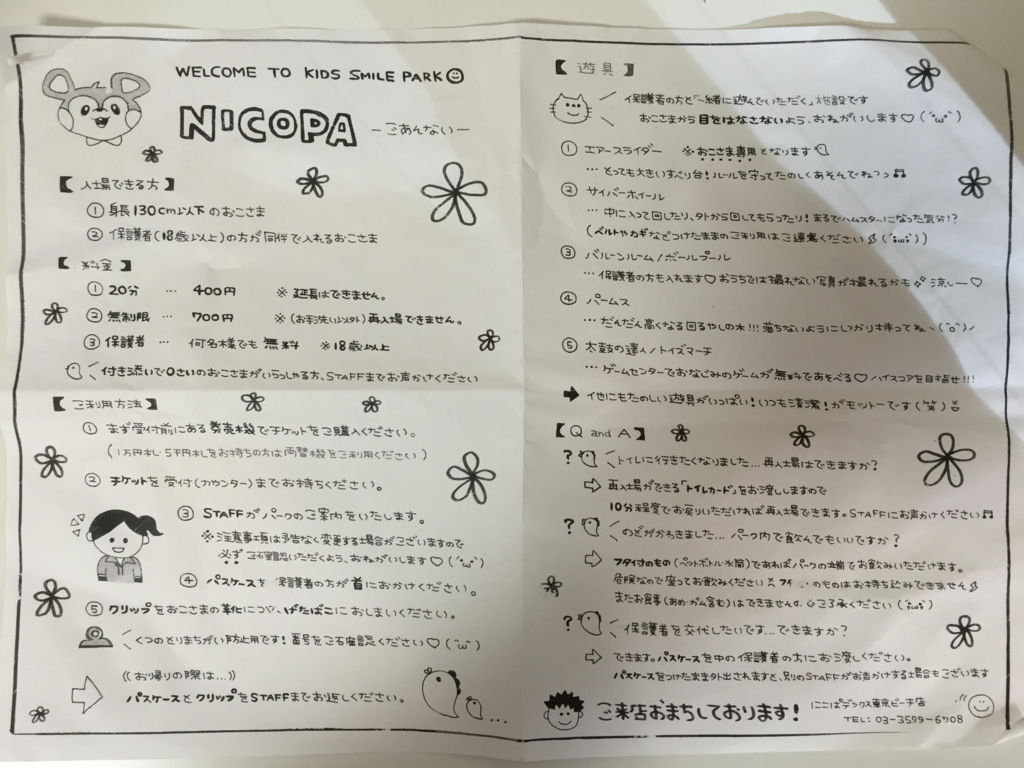 WELCOME TO KIDS SMILE PARK
NICOPA -ごあんない-
【入場できる方】
① 身長130cm以下のおこさま
② 保護者(18歳以上)の方が同伴で入れるおこさま
【料金】
① 20分 … 400円 ※延長はできません。
② 無制限 … 700円 ※(お手洗い以外)再入場できません。
③ 保護者 … 何名様でも無料 ※18歳以上
付き添いで0さいのおこさまがいらっしゃる方、STAFFまでお声かけください
【ご利用方法】
① まず受付前にある券売機でチケットをご購入ください。
(1万円札・5千円札をお持ちの方は両替機をご利用ください)
② チケットを受付(カウンター)までお持ちください。
③ STAFFがパークのご案内をいたします。
※注意事項は予告なく変更する場合がございますので
必ずご確認いただくよう、おねがいします♡(´ω`)
④ パスケースを保護者の方が首におかけください。
⑤ クリップをおこさまの靴につけ、げたばこにおしまいください。
くつのとりまちがい防止用です!番号をご確認ください♡(´ω`)
((お帰りの際は…))
パスケースとクリップをSTAFFまでお返しください。
【遊具】
保護者の方と「一緒に遊んでいただく」施設です
おこさまから目をはなさないよう、おねがいします♡(´ω`)
① エアースライダー ※おこさま専用となります
… とっても大きいすべり台!ルールを守ってたのしくあそんでねっっ♫
② サイバーホイール
… 中に入って回したり、外から回してもらったり!まるでハムスターになった気分!?
(ベルトやカギなどつけたままのご利用はご遠慮ください(´;ω;`))
③ バルーンルーム/ボールプール
… 保護者の方も入れます♡おうちでは撮れない写真が撮れるかも 涼しー♡
④ パームス
… だんだん高くなる回るやしの木!!!落ちないようにしっかり持ってねヽ(^o^)ノ
⑤ 太鼓の達人/トイズマーチ
… ゲームセンターでおなじみのゲームが無料であそべる♡ハイスコアを目指せ!!!
➡ 他にもたのしい遊具がいっぱい!いつも清潔!がモットーです(笑)
【Q and A】
? トイレに行きたくなりました…再入場はできますか?
⇨ 再入場ができる「トイレカード」をお渡ししますので
10分程度でお戻りいただければ再入場できます。STAFFにお声かけください♫
? のどがかわきました… パーク内で飲んでもいいですか?
⇨ フタ付のもの(ペットボトル・水筒)であればパークの立地でお飲みいただけます。
危険なので座ってお飲みください のものはお持ち込みできません
またお食事(あめ・ガム含む)はできません ご了承ください(´;ω;`)
? 保護者を交代したいです…できますか?
⇨ できます。パスケースを中の保護者の方にお渡しください。
パスケースをつけたまま外出されますと、別のSTAFFがお声かけする場合もございます
ご来店おまちしております!
にこぱデックス東京ビーチ店
TEL: 03-3599-6708